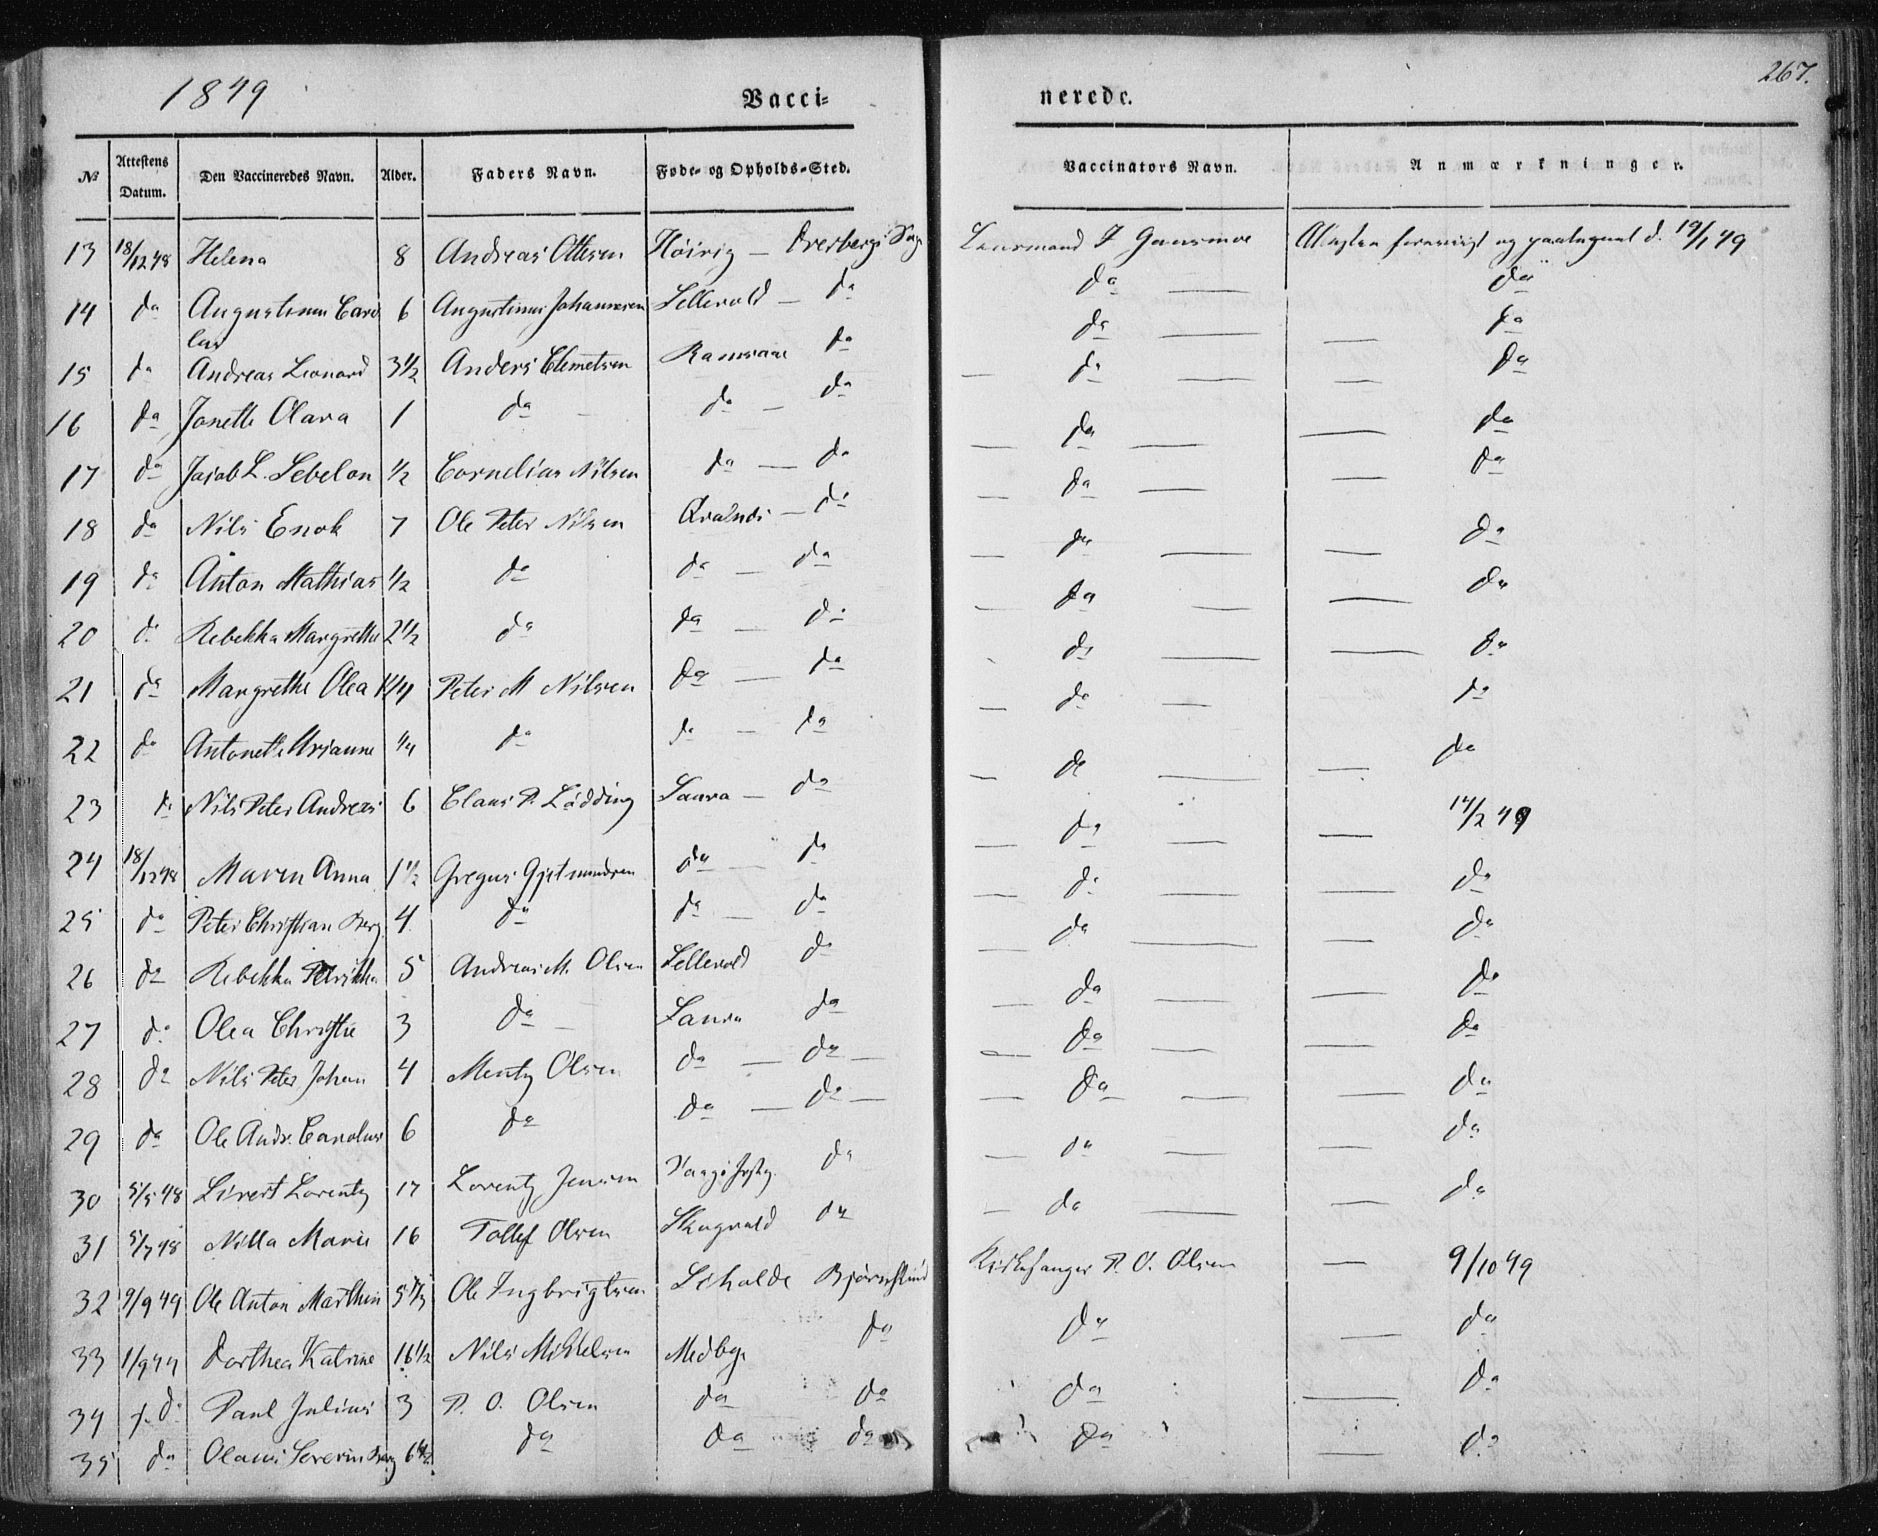 1849
Vacci=
nerede.
267.
№ Attestens Datum. Den Vaccineredes Navn. Alder. Faders Navn. Føde- og Opholds-Sted. Vaccinators Navn. Anmærkninger.
13 18/12 48 Helena 8 Andreas Ottesen Høivig — Overbergs Lensmand Gaasmoe Attesten foreviist og paategnet d. 19/1 49
14 da Augustinus Caro 6 Augustinus Johannesen Sellevold — da da — da
lus
15 da Andreas Leonard 3 1/2 Anders Clemetsen Ramsaae da da — — da
16 da Jonette Olava 1 da — da — da — da — — da
17 da Jacob L. Sebelon 1/2 Cornelius Nilsen da — da — da — — da
18 da Nils Enok 7 Ole Peter Nilsen — da — da — — da
19 da Anton Mathias 1/2 da da — da — da — — da
20 da Rebekka Margrethe 2 1/2 da da — da — da — — da
21 da Margrethe Olea 1 1/4 Peter M Nilsen da — da da — — da
22 da Antonette 1/4 da da — da — da — da
23 da Nils Peter Andreas 6 Claus P. Lødding Saura — da — da — — da
24 18/12 48 Maren Anna 1 1/2 Gregus Gjetmundsen da — da — da — 14/2 49
25 da Peter Christian Berg 4 da da — da — da — — da
26 da Rebekka 5 Andreas M. Olsen Sellevold da — da — — da
27 da Olea Christie 3 da — Saura da — da — — da
28 da Nils Peter Johan 4 Mentz Olsen da — da — — da — — da
29 da Ole Andr. Carolus 6 da da — da — — da — — da
30 5/5 48 Sivert Lorentz 17 Lorentz Jensen da — da — da
31 5/7 48 Nilla Marie 16 Tollef Olsen Skagvold da — da — — da
32 9/9 49 Ole Anton Marthin 5 Ole Ingbrigtsen Kirkesanger P. O. Olsen — 9/10 49
33 1/9 44 Dorthea Katrine 16 1/2 Nils Mikkelsen Medbye da da — da
34 da Paul Julius 3 P. O. Olsen da da da — da
35 da Olaus Severin Berg 6 1/2 da da da da — da